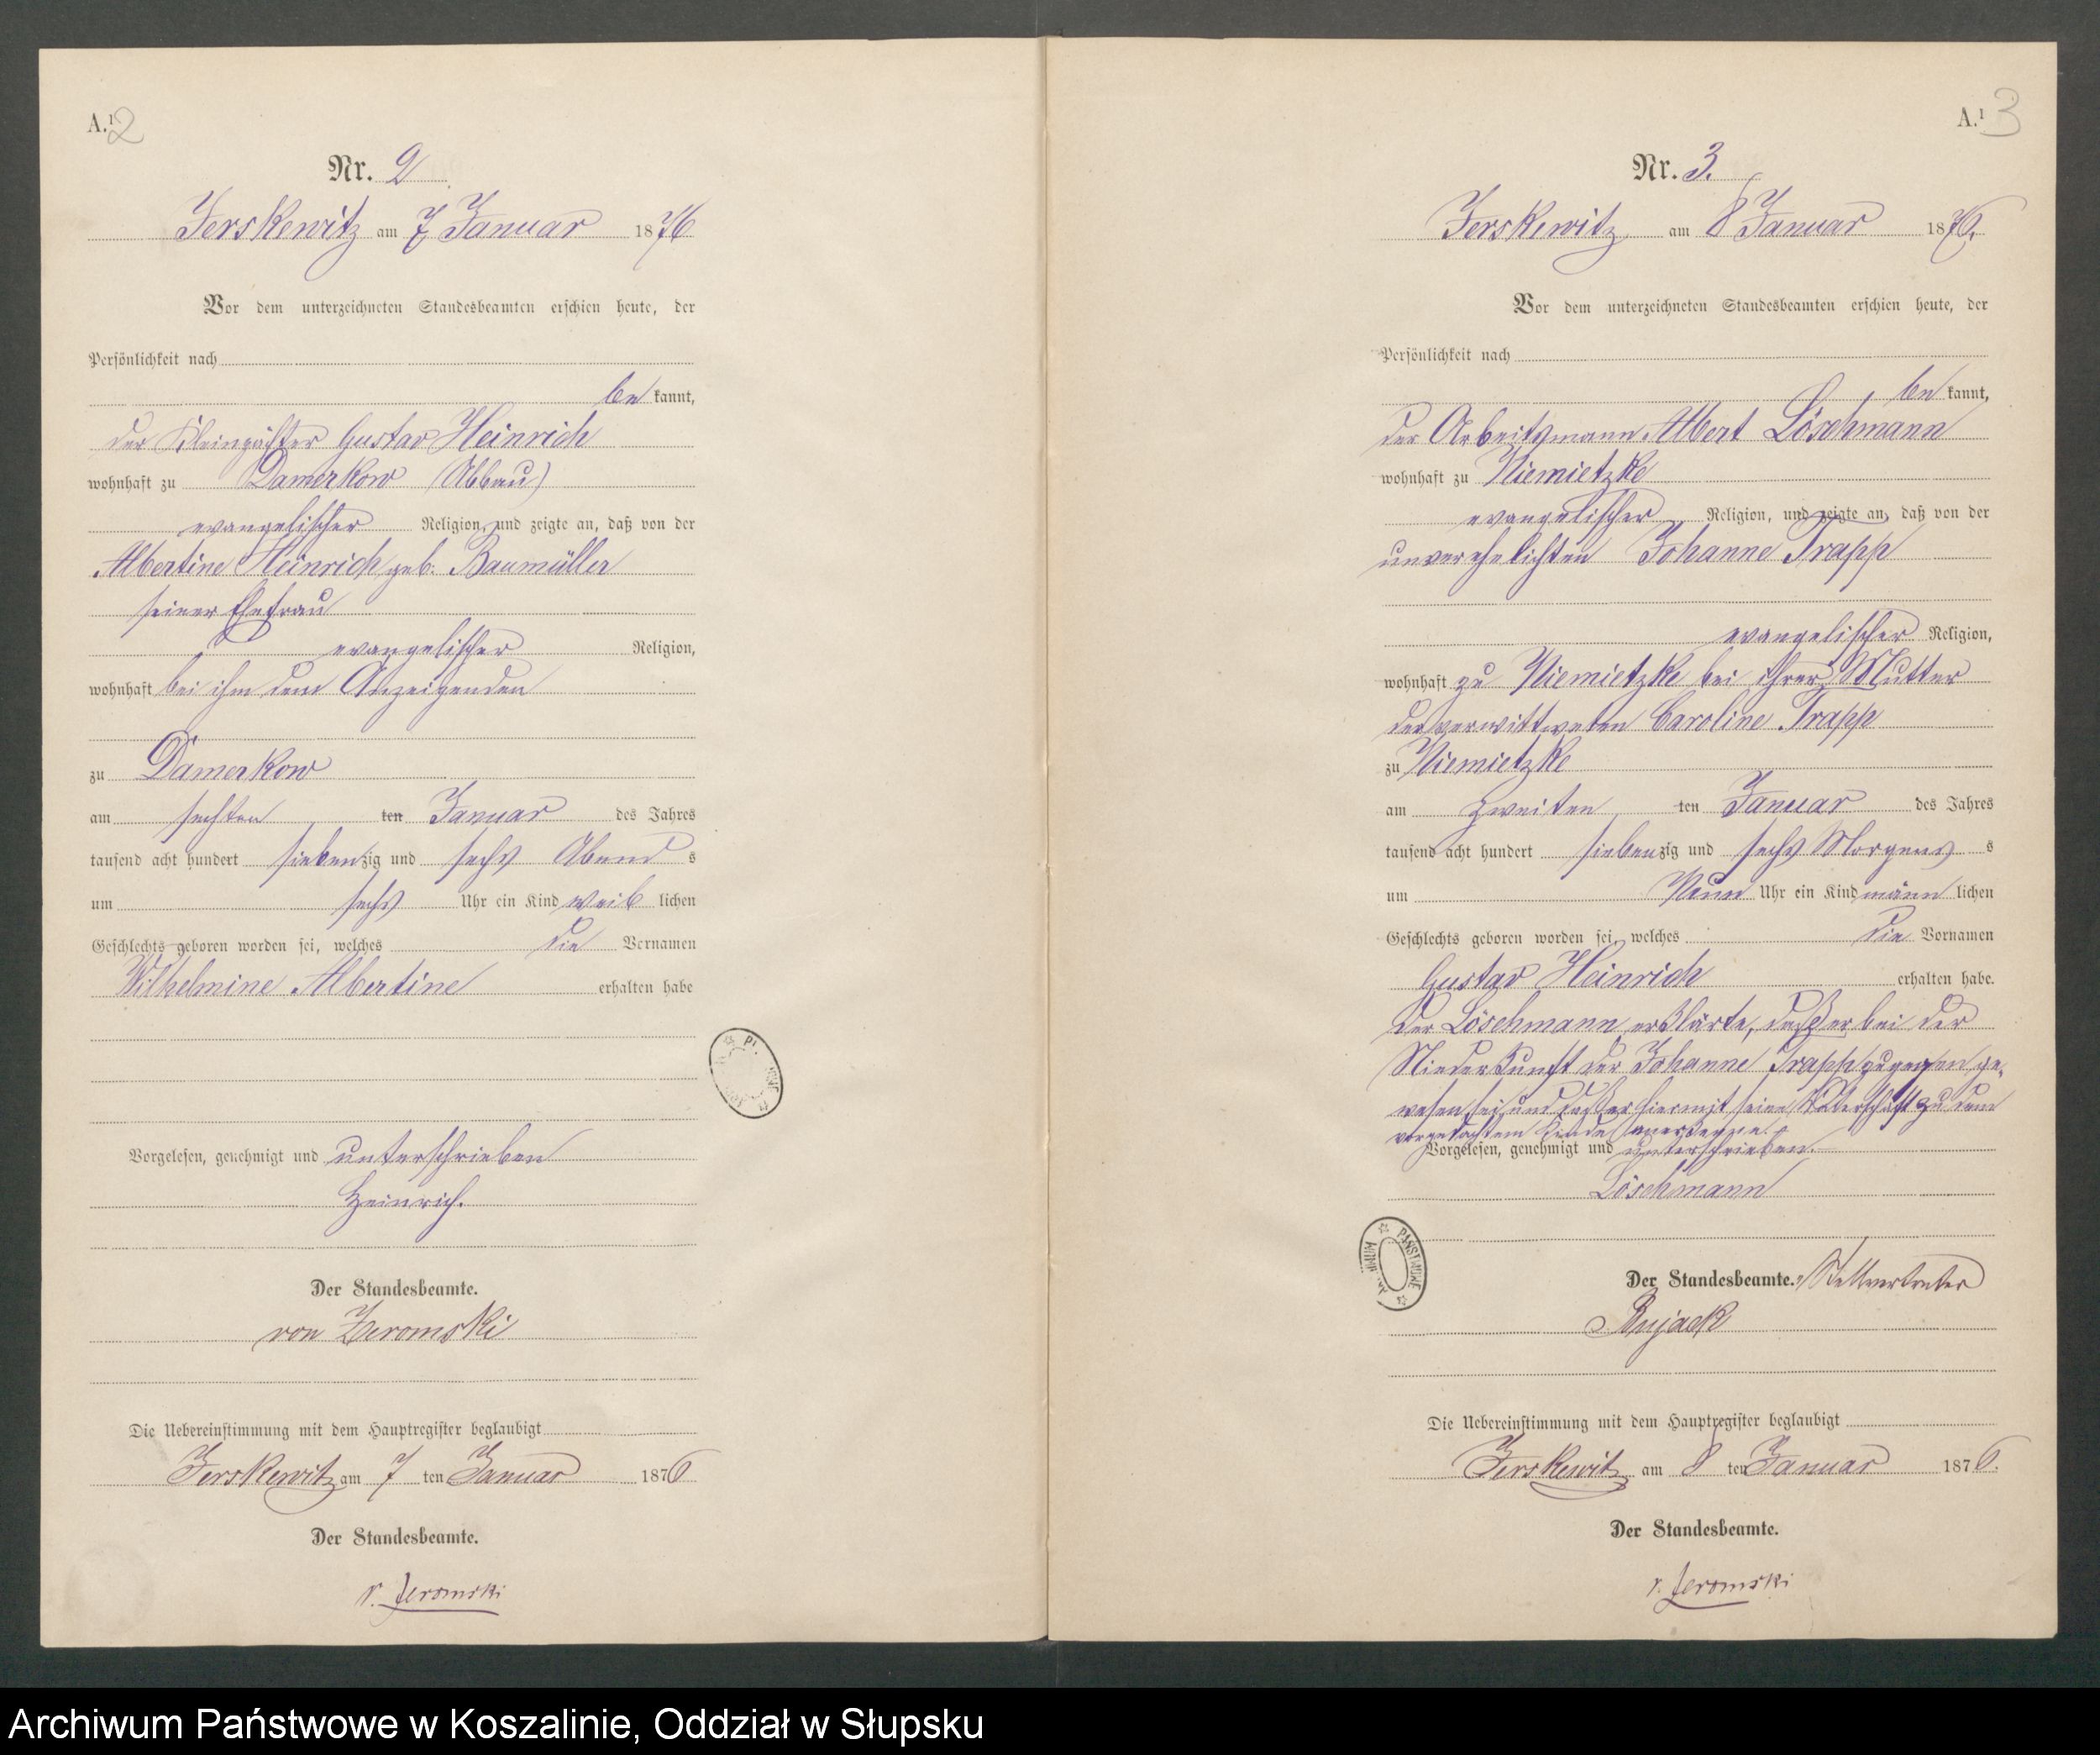 A.¹ 2
Nr. 2
Jerskewitz am 7 Januar 1876
Vor dem unterzeichneten Standesbeamten erschien heute, der
Persönlichkeit nach
be kannt,
der Kleinpächter Gustav Heinrich
wohnhaft zu Damerkow (Abbau)
evangelischer Religion, und zeigte an, daß von der
Albertine Heinrich geb. Baumüller
seiner Ehefrau
evangelischer Religion,
wohnhaft bei ihm dem Anzeigenden
zu Damerkow
am sechsten ten Januar des Jahres
tausend acht hundert siebenzig und sechs Abend s
um sechs Uhr ein Kind weib lichen
Geschlechts geboren worden sei, welches die Vornamen
Wilhelmine Albertine erhalten habe
Vorgelesen, genehmigt und unterschrieben
Heinrich.
Der Standesbeamte.
von Zeromski
Die Uebereinstimmung mit dem Hauptregister beglaubigt
Jerskewitz am 7 ten Januar 1876
Der Standesbeamte.
v. Zeromski
A.¹ 3
Nr. 3.
Jerskewitz am 8 Januar 1876.
Vor dem unterzeichneten Standesbeamten erschien heute, der
Persönlichkeit nach
be kannt,
der Arbeitsmann Albert Löschmann
wohnhaft zu Niemietzke
evangelischer Religion, und zeigte an, daß von der
unverehelichten Johanne Trapp
evangelischer Religion,
wohnhaft zu Niemietzke bei ihrer Mutter
der verwittweten Caroline Trapp
zu Niemietzke
am zweiten ten Januar des Jahres
tausend acht hundert siebenzig und sechs Morgens s
um Neun Uhr ein Kind männ lichen
Geschlechts geboren worden sei, welches die Vornamen
Gustav Heinrich erhalten habe.
Der Löschmann erklärte, daß er bei der
Niederkunft der Johanne Trapp zugegen ge-
wesen sei und daß er hiermit seine Vaterschaft zu dem
vorgedachtem Kinde anerkenne.
Vorgelesen, genehmigt und unterschrieben.
Löschmann
Der Standesbeamte. Stellvertreter
Rujack
Die Uebereinstimmung mit dem Hauptregister beglaubigt
Jerskewitz am 8 ten Januar 1876.
Der Standesbeamte.
v. Zeromski
Archiwum Państwowe w Koszalinie, Oddział w Słupsku